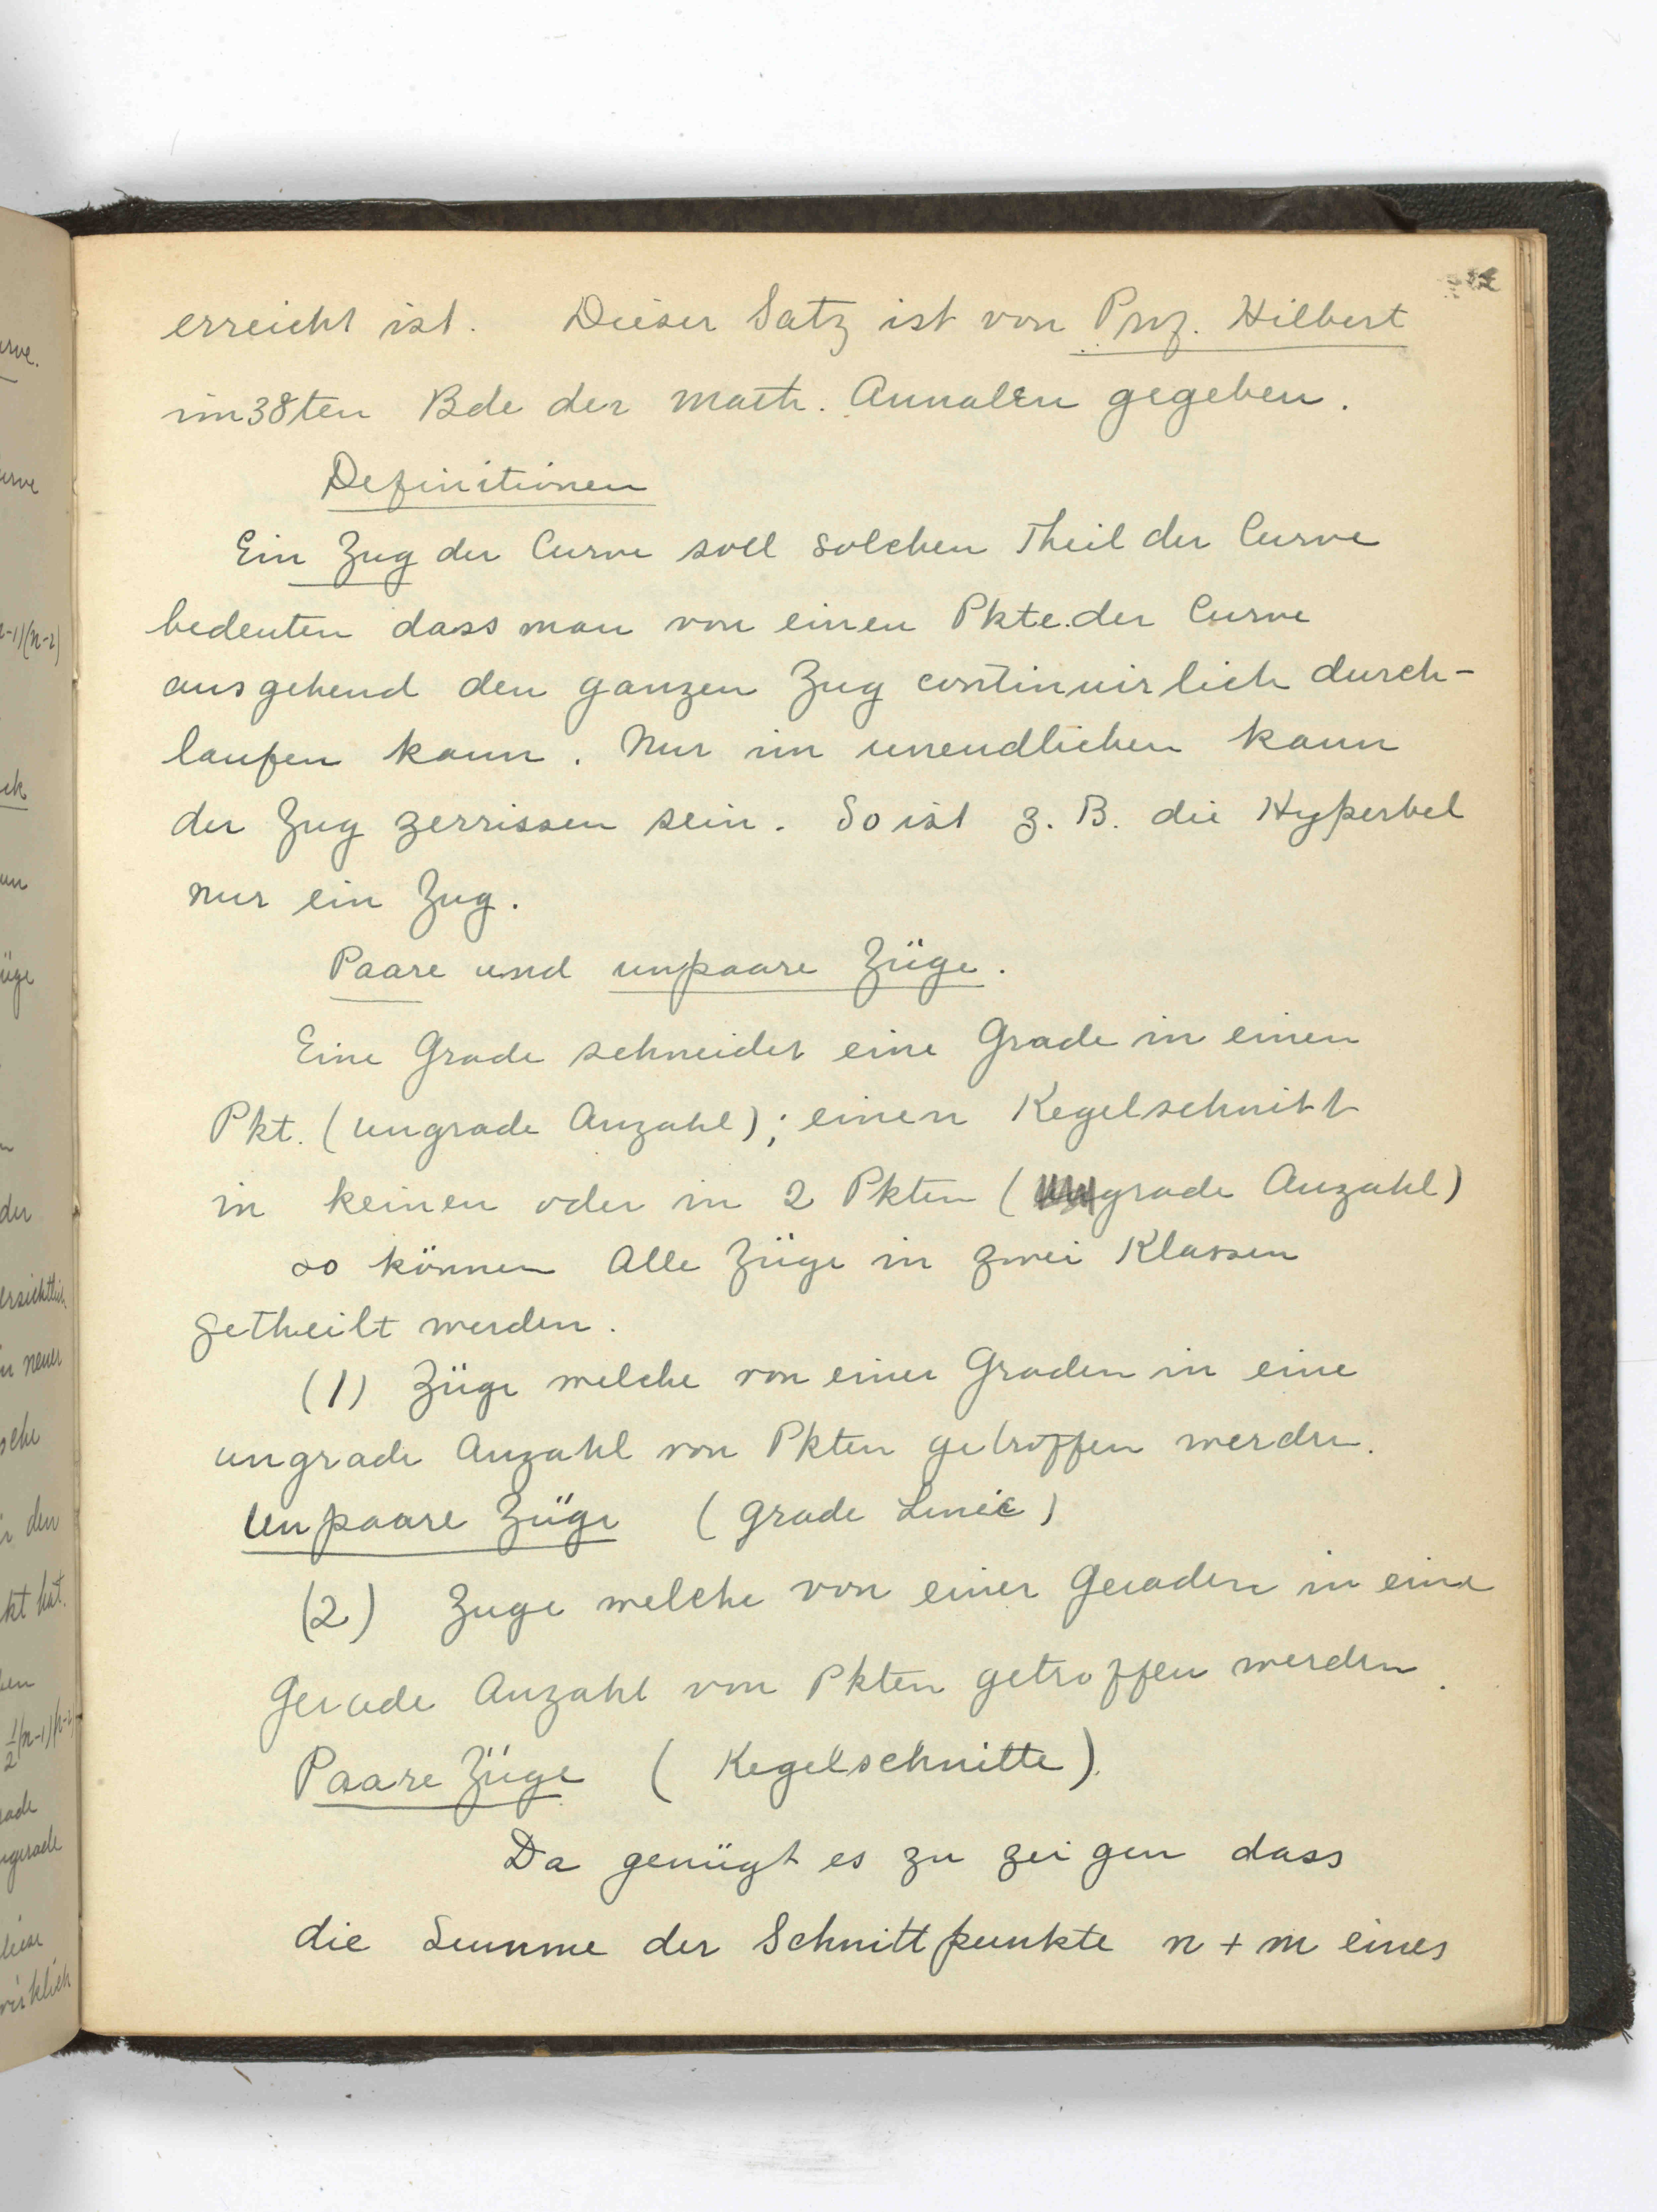 erreicht ist. Dieser Satz ist von Prof. Hilbert
im 38ten Bde der Math. Annalen gegeben.
Definitionen
Ein Zug der Curve soll solchen Theil der Curve
bedeuten dass man von einen Pkte der Curve
ausgehend den ganzen Zug continuirlich durch-
laufen kann. Nur im unendlichen kann
der Zug zerrissen sein. So ist z. B. die Hyperbel
nur ein Zug.
Paare und unpaare Züge.
Eine Grade schneidet eine Grade in einen
Pkt. (ungrade Anzahl); einen Kegelschnitt
in keinen oder in 2 Pkten (grade Anzahl)
so können Alle Züge in zwei Klassen
getheilt werden.
(1) Züge welche von einer Graden in eine
ungrade Anzahl von Pkten getroffen werden.
Unpaare Züge (grade Linie)
(2) Zuge welche von einer Geraden in eine
Gerade Anzahl von Pkten getroffen werden.
Paare Züge (Kegelschnitte).
Da genügt es zu zeigen dass
die Summe der Schnittpunkte n + m eines